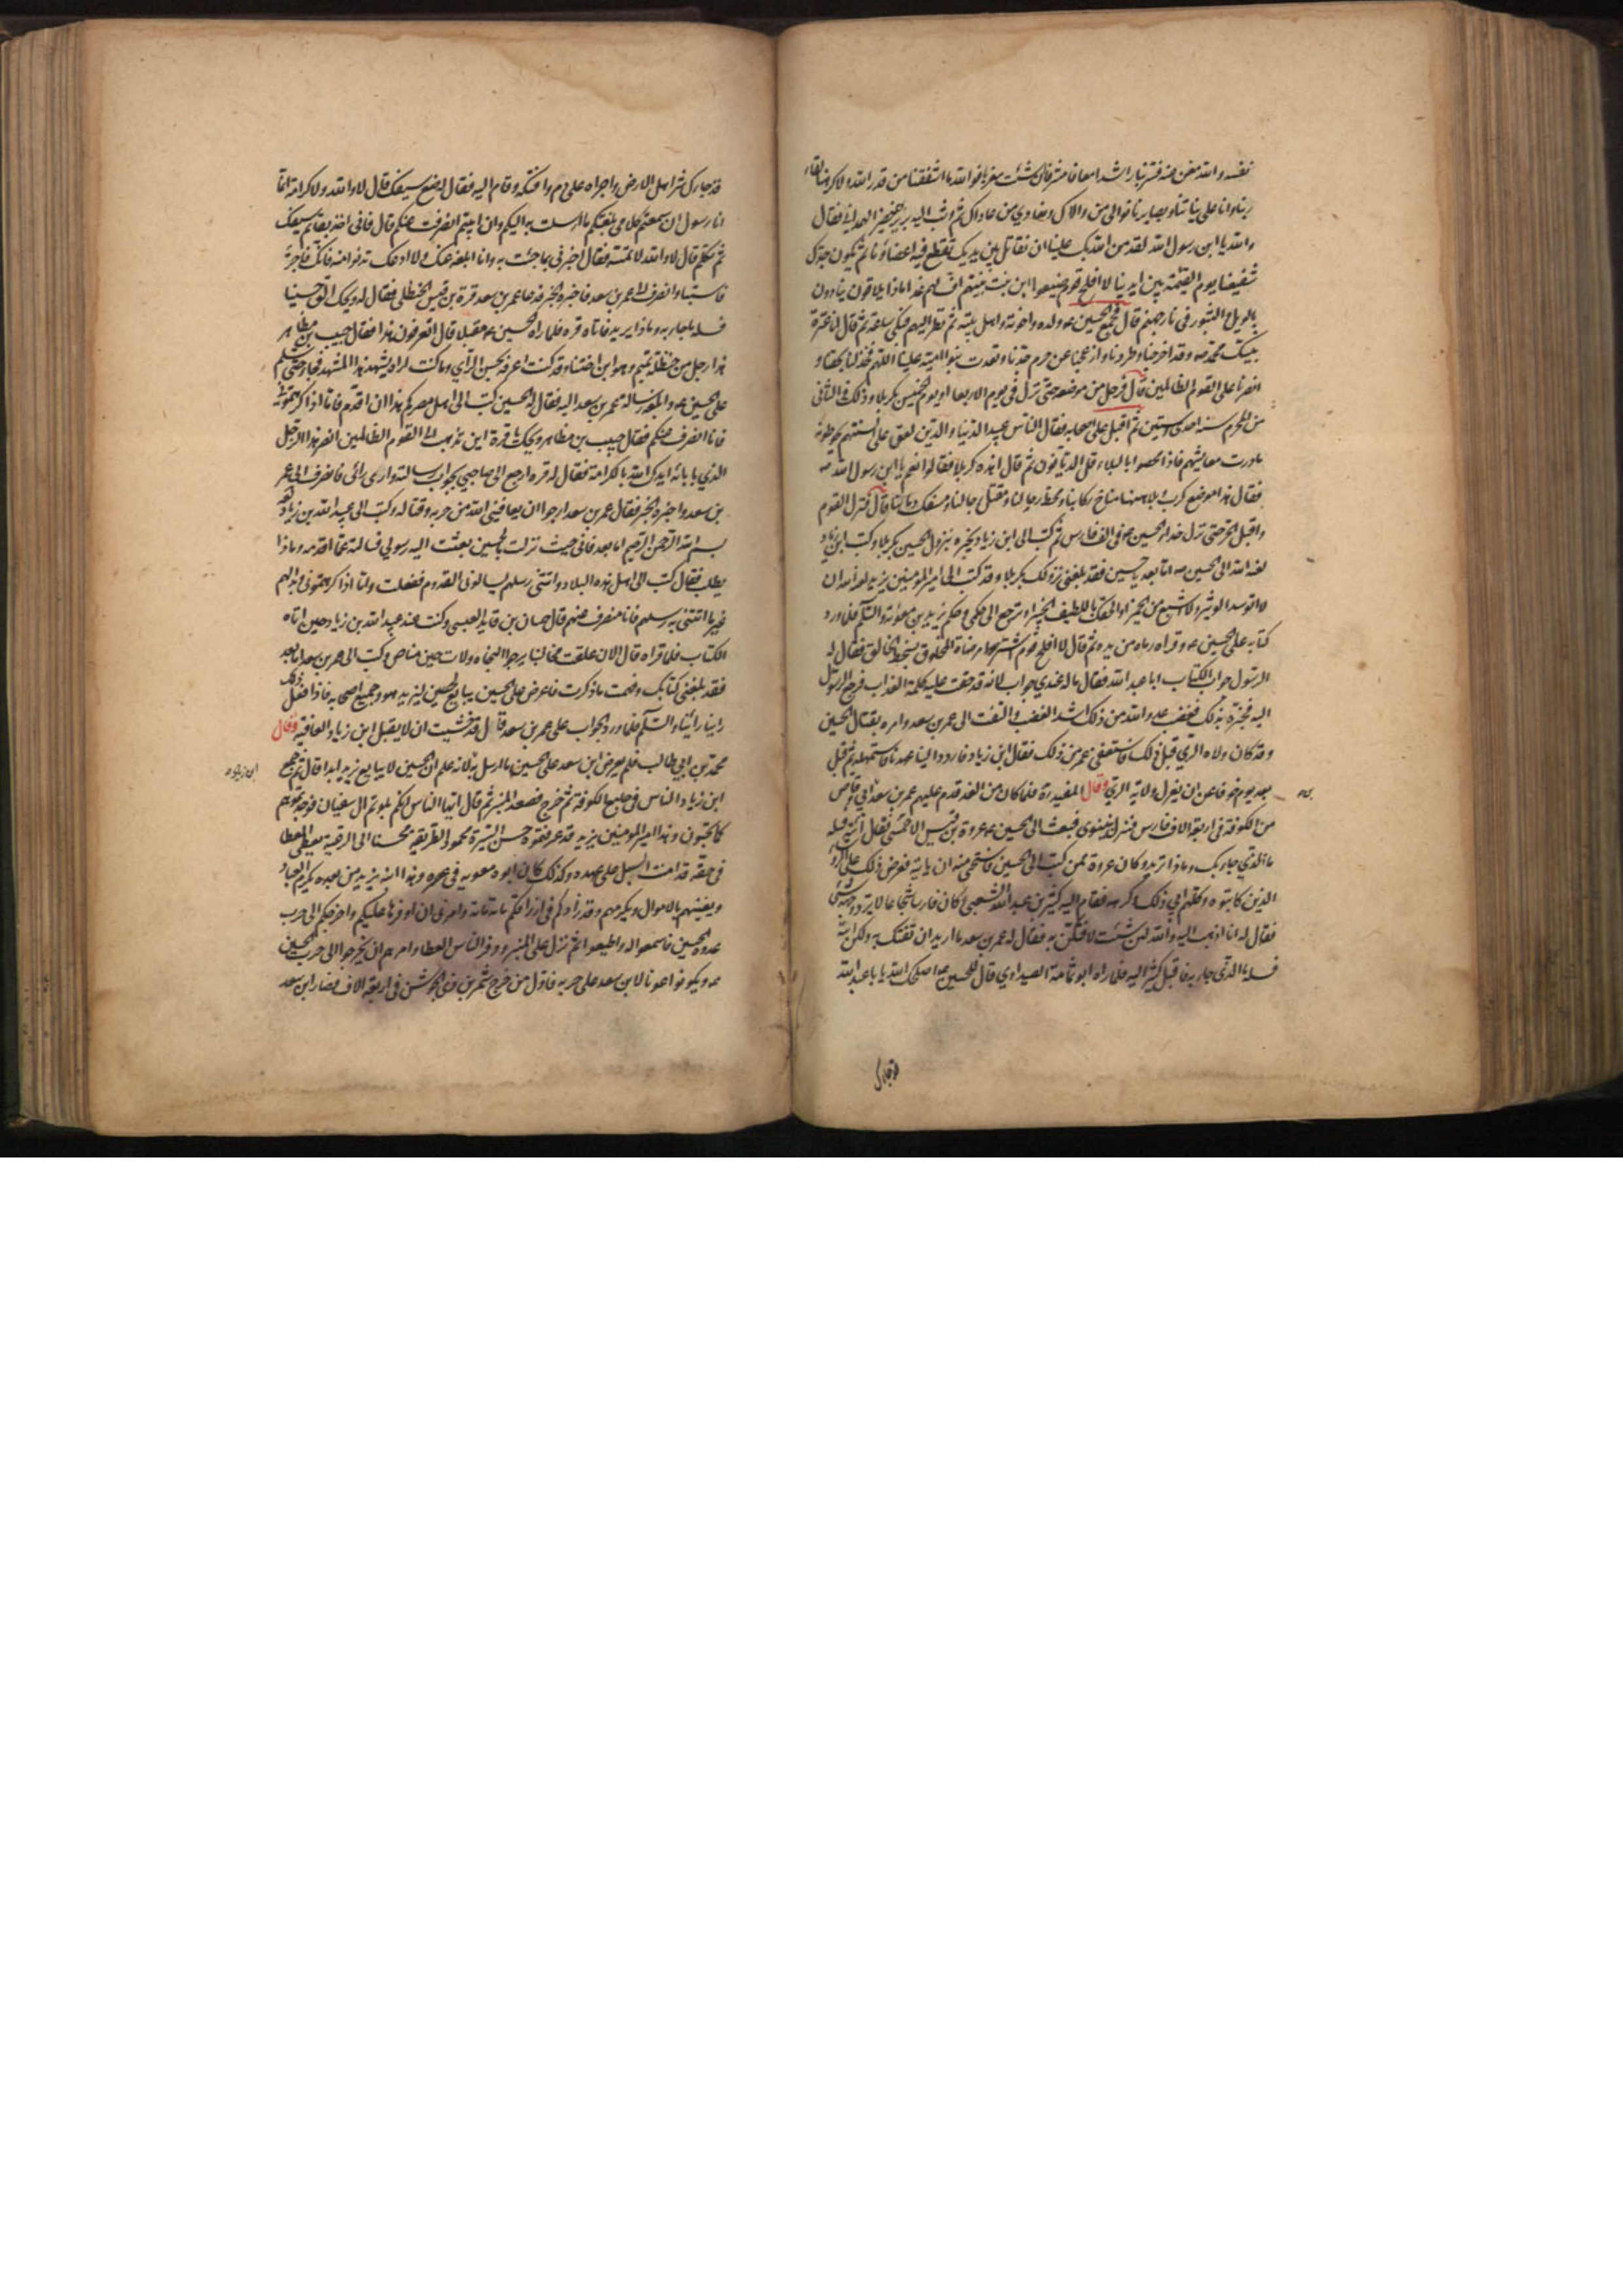 نفسه والله مغن عنه فسر بنا راشدا معافا مشرقا ان شئت مغربا فوالله ما اشفقنا من قدر الله ولا كرهنا لقاء
ربنا وانا على نياتنا وبصايرنا نوالى من والاك ونعادي من عاداك ثم وثب اليه برير بن خضير الهمداني فقال
والله يا ابن رسول الله لقد من الله بك علينا ان نقاتل بين يديك تقطع فيه اعضاؤنا ثم يكون جدك
شفيعنا يوم القيمة بين ايدينا لا افلح قوم ضيعوا ابن بنت نبيهم اف لهم غدا ماذا يلاقون ينادون
بالويل والثبور في نار جهنم قال فجمع الحسين ع ولده واخوته واهل بيته ثم نظر اليهم فبكى ساعة ثم قال انا عترة
نبيك محمد ص وقد اخرجنا وطردنا وازعجنا عن حرم جدنا وتعدت بنو امية علينا اللهم فخذ لنا بحقنا و
انصرنا على القوم الظالمين قال فرحل من موضعه حتى نزل في يوم الاربعا او يوم الخميس بكربلا وذلك في الثاني
من المحرم سنة احدى وستين ثم اقبل على اصحابه فقال الناس عبيد الدنيا والدين لعق على السنتهم يحوطونه
ما درت معايشهم فاذا محصوا بالبلاء قل الديانون ثم قال اهذه كربلا فقالوا نعم يا ابن رسول الله ص
فقال هذا موضع كرب وبلا ههنا مناخ ركابنا ومحط رجالنا ومقتل رجالنا ومسفك دمائنا قال فنزل القوم
واقبل الحر حتى نزل حذاء الحسين ع في الف فارس ثم كتب الى ابن زياد يخبره بنزول الحسين بكربلا وكتب ابن زياد
لعنه الله الى الحسين ص اما بعد يا حسين فقد بلغني نزولك بكربلا وقد كتب الى امير المؤمنين يزيد لعنه الله ان
لا اتوسد الوثير ولا اشبع من الخمير او الحقك باللطيف الخبير او ترجع الى حكمي وحكم يزيد بن معوية والسلم فلما ورد
كتابه على الحسين ع وقراه رماه من يده ثم قال لا افلح قوم اشتروا مرضاة المخلوق بسخط الخالق فقال له
الرسول جواب الكتاب ابا عبد الله فقال ما له عندي جواب لانه قد حقت عليه كلمة العذاب فرجع الرسول
اليه فخبره بذلك فغضب عدو الله من ذلك اشد الغضب والتفت الى عمر بن سعد وامره بقتال الحسين
وقد كان ولاه الري قبل ذلك فاستعفى عمر من ذلك فقال ابن زياد فاردد الينا عهدنا فاستمهله ثم قبل
بعد يوم خوفا عن ان يعزل ولاية الري وقال المفيد ره فلما كان من الغد قدم عليهم عمر بن سعد ابي وقاص
من الكوفة في اربعة الاف فارس فنزل بنينوى فبعث الى الحسين ع عروة بن قيس الاحمسي فقال ائته فسله
ما الذي جاء بك وماذا تريد وكان عروة ممن كتب الى الحسين فاستحيى منه ان ياتيه فعرض ذلك على الرؤساء
الذين كاتبوه وكلهم ابي ذلك وكرهه فقام اليه كثير بن عبد الله الشعبي وكان فارسا شجاعا لا يرد وجهه شئ
فقال له انا اذهب اليه والله لئن شئت لافتكن به فقال له عمر بن سعد ما اريد ان تفتك به ولكن ائته
فسله ما الذي جاء به فاقبل كثير اليه فلما راه ابو ثمامة الصيداوي قال للحسين ع اصلحك الله يا ابا عبد الله
قد جاءك
قد جاءك شر اهل الارض واجراه على دم وافتكه وقام اليه فقال له ضع سيفك قال لا والله ولا كرامة انما
انا رسول ان سمعتم كلامي بلغتكم ما ارسلت به اليكم وان ابيتم انصرفت عنكم قال فاني اخذ بقائم سيفك
ثم تكلم قال لا والله لا تمسه فقال اخبرني بما جئت به وانا ابلغه عنك ولا ادعك تدنو منه فانك فاجر
فاستبا وانصرف الى عمر بن سعد فاخبره الخبر فدعا عمر بن سعد قرة بن قيس الحنظلي فقال له ويحك الق حسينا
فسله ما جاء به وماذا يريد فاتاه قره فلما راه الحسين ع مقبلا قال اتعرفون هذا فقال حبيب بن مظاهر
هذا رجل من حنظلة تميم وهو ابن اختنا وقد كنت اعرفه بحسن الراي وما كنت اراه يشهد هذا المشهد فجاء حتى سلم
على الحسين ع وابلغه رسالة عمر بن سعد اليه فقال له الحسين كتب الى اهل مصركم هذا ان اقدم فاما اذا كرهتموني
فانا انصرف عنكم فقال حبيب بن مظاهر ويحك يا قرة اين تذهب الى القوم الظالمين انصر هذا الرجل
الذي بابائه ايدك الله بالكرامة فقال له قره ارجع الى صاحبي بجواب رسالته وارى رائي فانصرف الى عمر
بن سعد واخبره الخبر فقال عمر بن سعد ارجوا ان يعافيني الله من حربه وقتاله وكتب الى عبيد الله بن زياد
بسم الله الرحمن الرحيم اما بعد فاني حيث نزلت بالحسين بعثت اليه رسولي فسالته عما اقدمه وماذا
يطلب فقال كتب الى اهل هذه البلاد واتتني رسلهم يسالوني القدوم ففعلت ولما اذا كرهتموني وبدا لهم
غير ما اتتني به رسلهم فانا منصرف عنهم قال حسان بن قايد العبسي وكنت عند عبيد الله بن زياد حين اتاه
الكتاب فلما قراه قال الان علقت مخالبنا يرجوا النجاه ولات حين مناص وكتب الى عمر بن سعد اما بعد
فقد بلغني كتابك وفهمت ما ذكرت فاعرض على الحسين يبايع الحسين ليزيد هو وجميع اصحابه فاذا فعل ذلك
راينا رائينا والسلم فلما ورد الجواب على عمر بن سعد قال قد خشيت ان لا يقبل ابن زياد العافية وقال
محمد بن ابي طالب فلم يعرض ابن سعد على الحسين ما ارسل به لانه علم ان الحسين لا يبايع يزيد ابدا قال ثم جمع
ابن زياد
ابن زياد الناس في جامع الكوفة ثم خرج فصعد المنبر ثم قال ايها الناس انكم بلوتم ال سفيان فوجدتموهم
كما تحبون وهذا امير المؤمنين يزيد قد عرفتموه حسن السيرة محمود الطريقة محسنا الى الرعية يعطي العطا
في حقه قد امنت السبل على عهده وكذلك كان ابوه معوية في عصره وهذا ابنه يزيد من بعده يكرم العباد
ويغنيهم بالاموال ويكرمهم وقد زادكم في ارزاقكم مائة مائة وامرني ان اوفرها عليكم واخرجكم الى حرب
عدوه الحسين فاسمعوا له واطيعوا ثم نزل على المنبر ووفر الناس العطا وامرهم ان يخرجوا الى حرب الحسين
ع ويكونوا عونا لابن سعد على حربه فاول من خرج شمر بن ذي الجوشن في اربعة الاف فصار ابن سعد